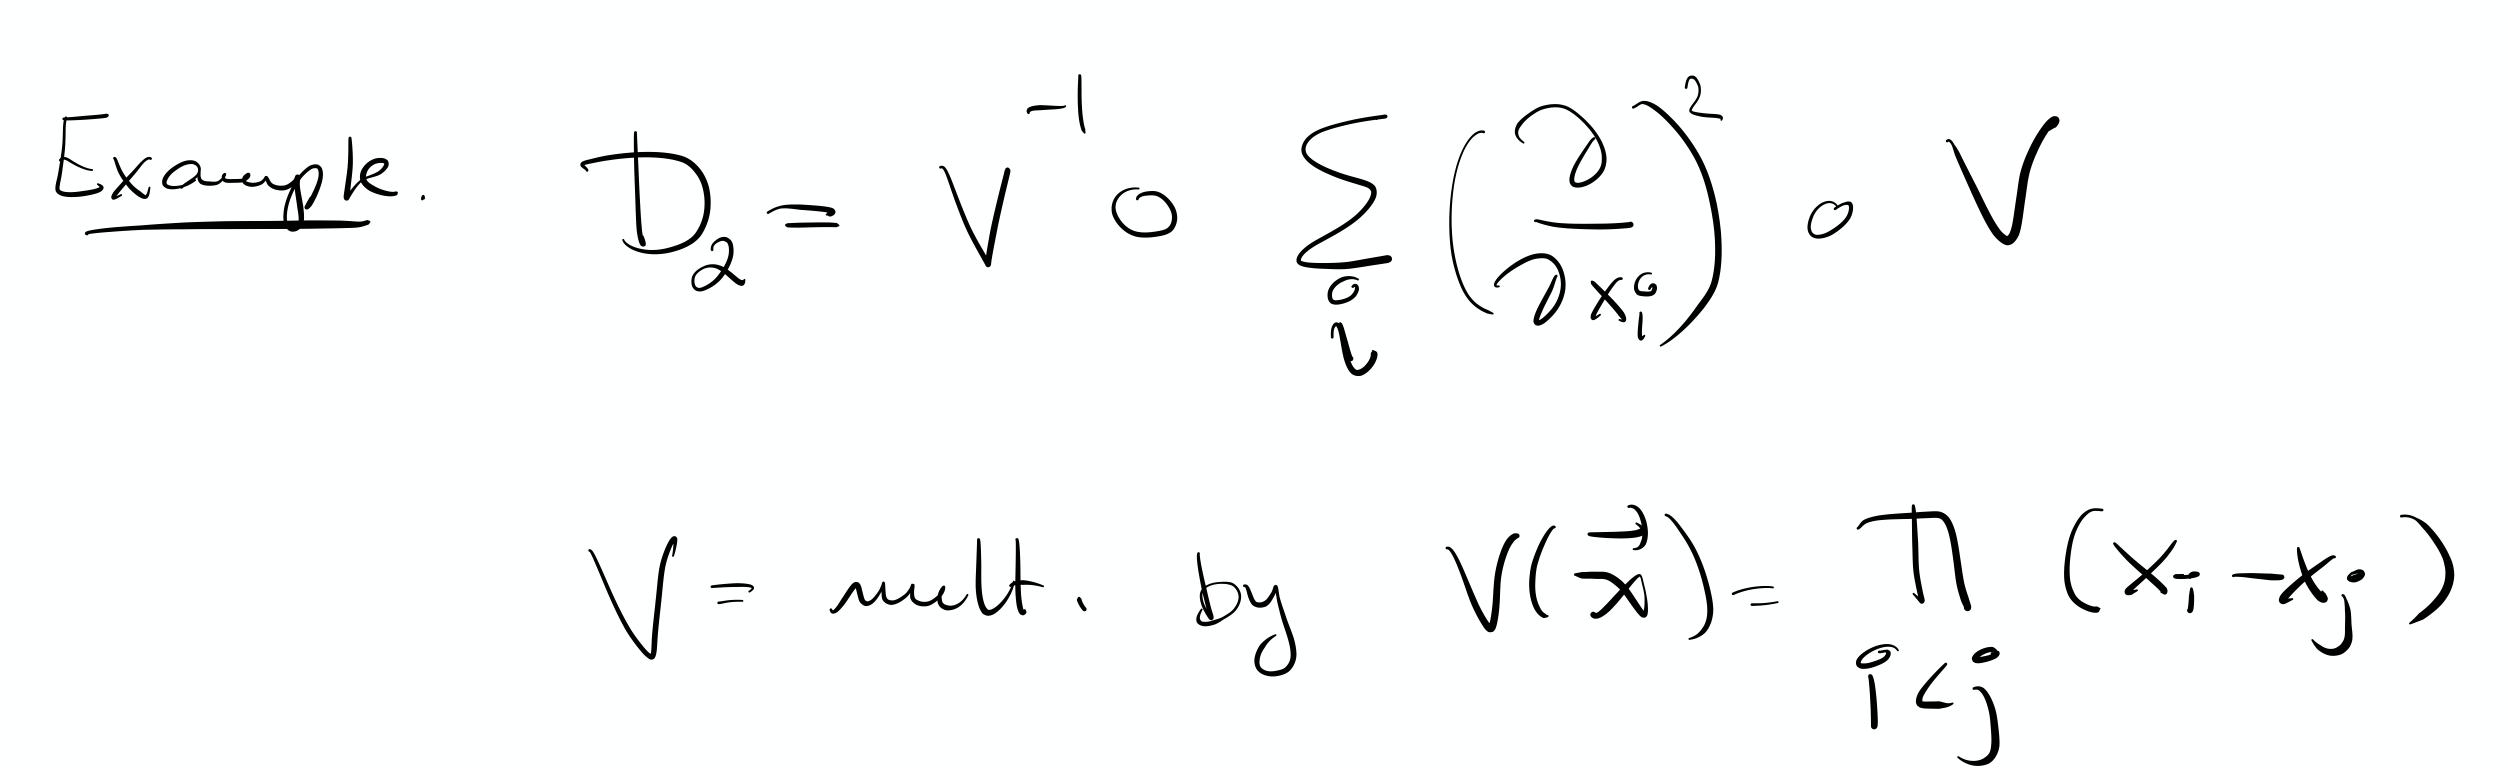 Example.
D₂ = V⁻¹ ∘ Σᵢ (∂/∂xᵢ)² ∘ V
V = mult. by V(x) = ∏_{i<j} (xᵢ - xⱼ)